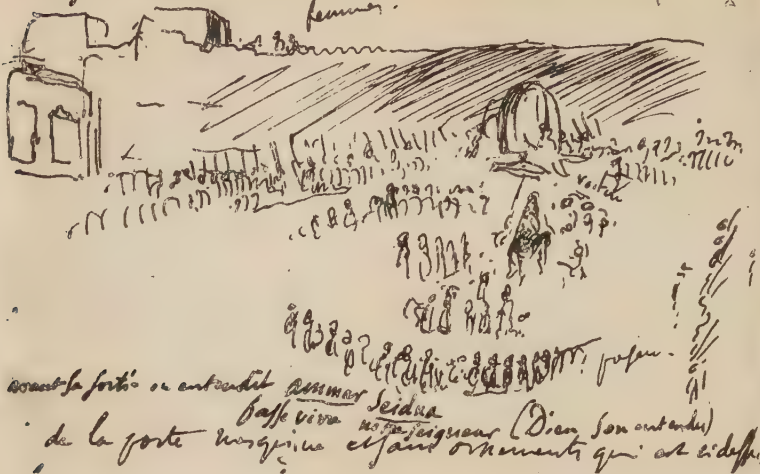 femmes.
avant sa sortie on entendit ammar Seidna
fasse vivre notre Seigneur (Dieu sous entendu)
de la porte mesquine et sans ornements qui est ci dessus